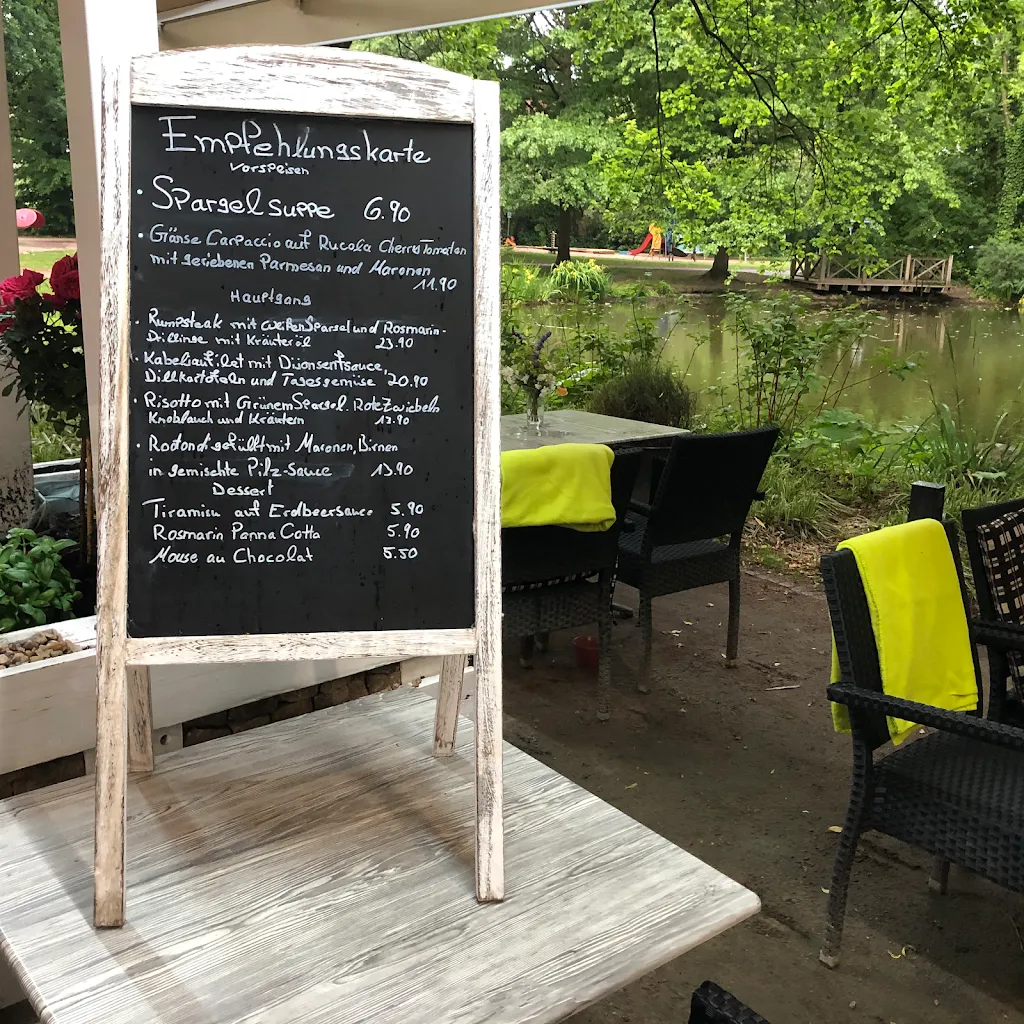 Empfehlungskarte
Vorspeisen
• Spargelsuppe 6.90
• Gänse Carpaccio auf Rucola Cherry Tomaten
mit geriebenen Parmesan und Maronen
11.90
Hauptgang
• Rumpsteak mit weißen Spargel und Rosmarin-
Drillinge mit Kräuteröl 23.90
• Kabeljaufilet mit Dijonsenfsauce,
Dillkartofeln und Tagesgemüse 20.90
• Risotto mit Grünem Spargel. Rote Zwiebeln
Knoblauch und Kräutern 13.90
• gefüllt mit Maronen, Birnen
in gemischte Pilz-Sauce 13.90
Dessert
Tiramisu auf Erdbeersauce 5.90
Rosmarin Panna Cotta 5.90
Mouse au Chocolat 5.50